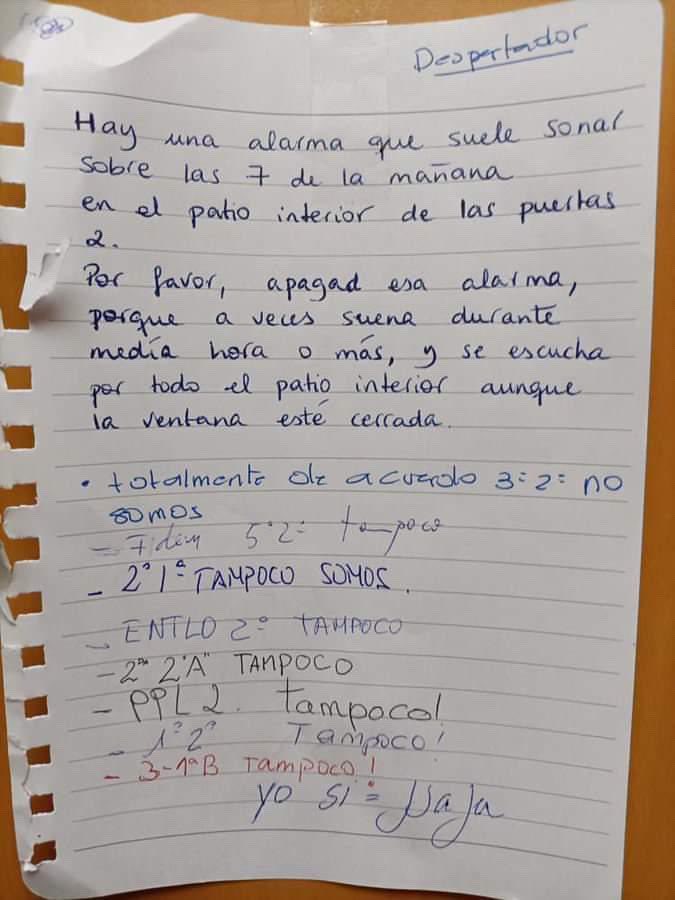 Despertador
Hay una alarma que suele sonar
sobre las 7 de la mañana
en el patio interior de las puertas
2.
Por favor, apagad esa alarma,
porque a veces suena durante
media hora o más, y se escucha
por todo el patio interior aunque
la ventana esté cerrada.
• totalmente de acuerdo 3º 2º no
somos
- Idem 5º 2º tampoco
- 2º 1ª TAMPOCO SOMOS.
- ENTLO 2º TAMPOCO
- 2º 2ªA" TAMPOCO
- PPL 2. tampoco!
- 1º 2ª Tampoco!
- 3-1ªB Tampoco!
yo si = JJaJa